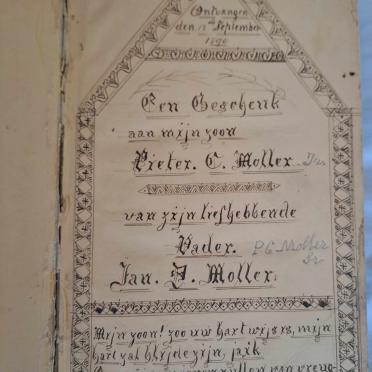 Ontvangen
den 12den September
1896
Een Geschenk
aan mijn zoon
Pieter. C. Moller. Jr
van zijn liefhebbende
Vader. P G Moller
Sr
Jan. J. Moller.
Mijn zoon! zoo uw hart wijs is, mijn
hart zal blijde zijn, ja ik